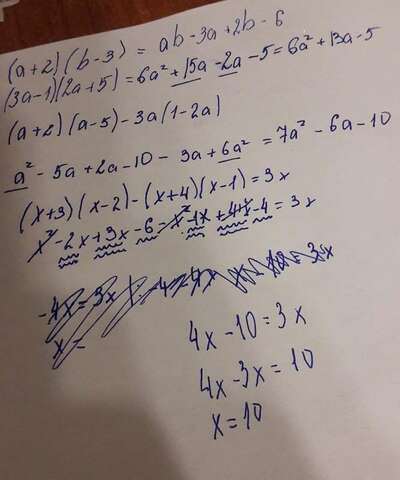 (a+2)(b-3) = ab-3a+2b-6
(3a-1)(2a+5)=6a²+15a-2a-5=6a²+13a-5
(a+2)(a-5)-3a(1-2a)
a²-5a+2a-10-3a+6a²=7a²-6a-10
(x+3)(x-2)-(x+4)(x-1)=3x
x²-2x+3x-6-x²-1x+4x-4=3x
-4x=3x
x=
4x-10=3x
4x-3x=10
x=10